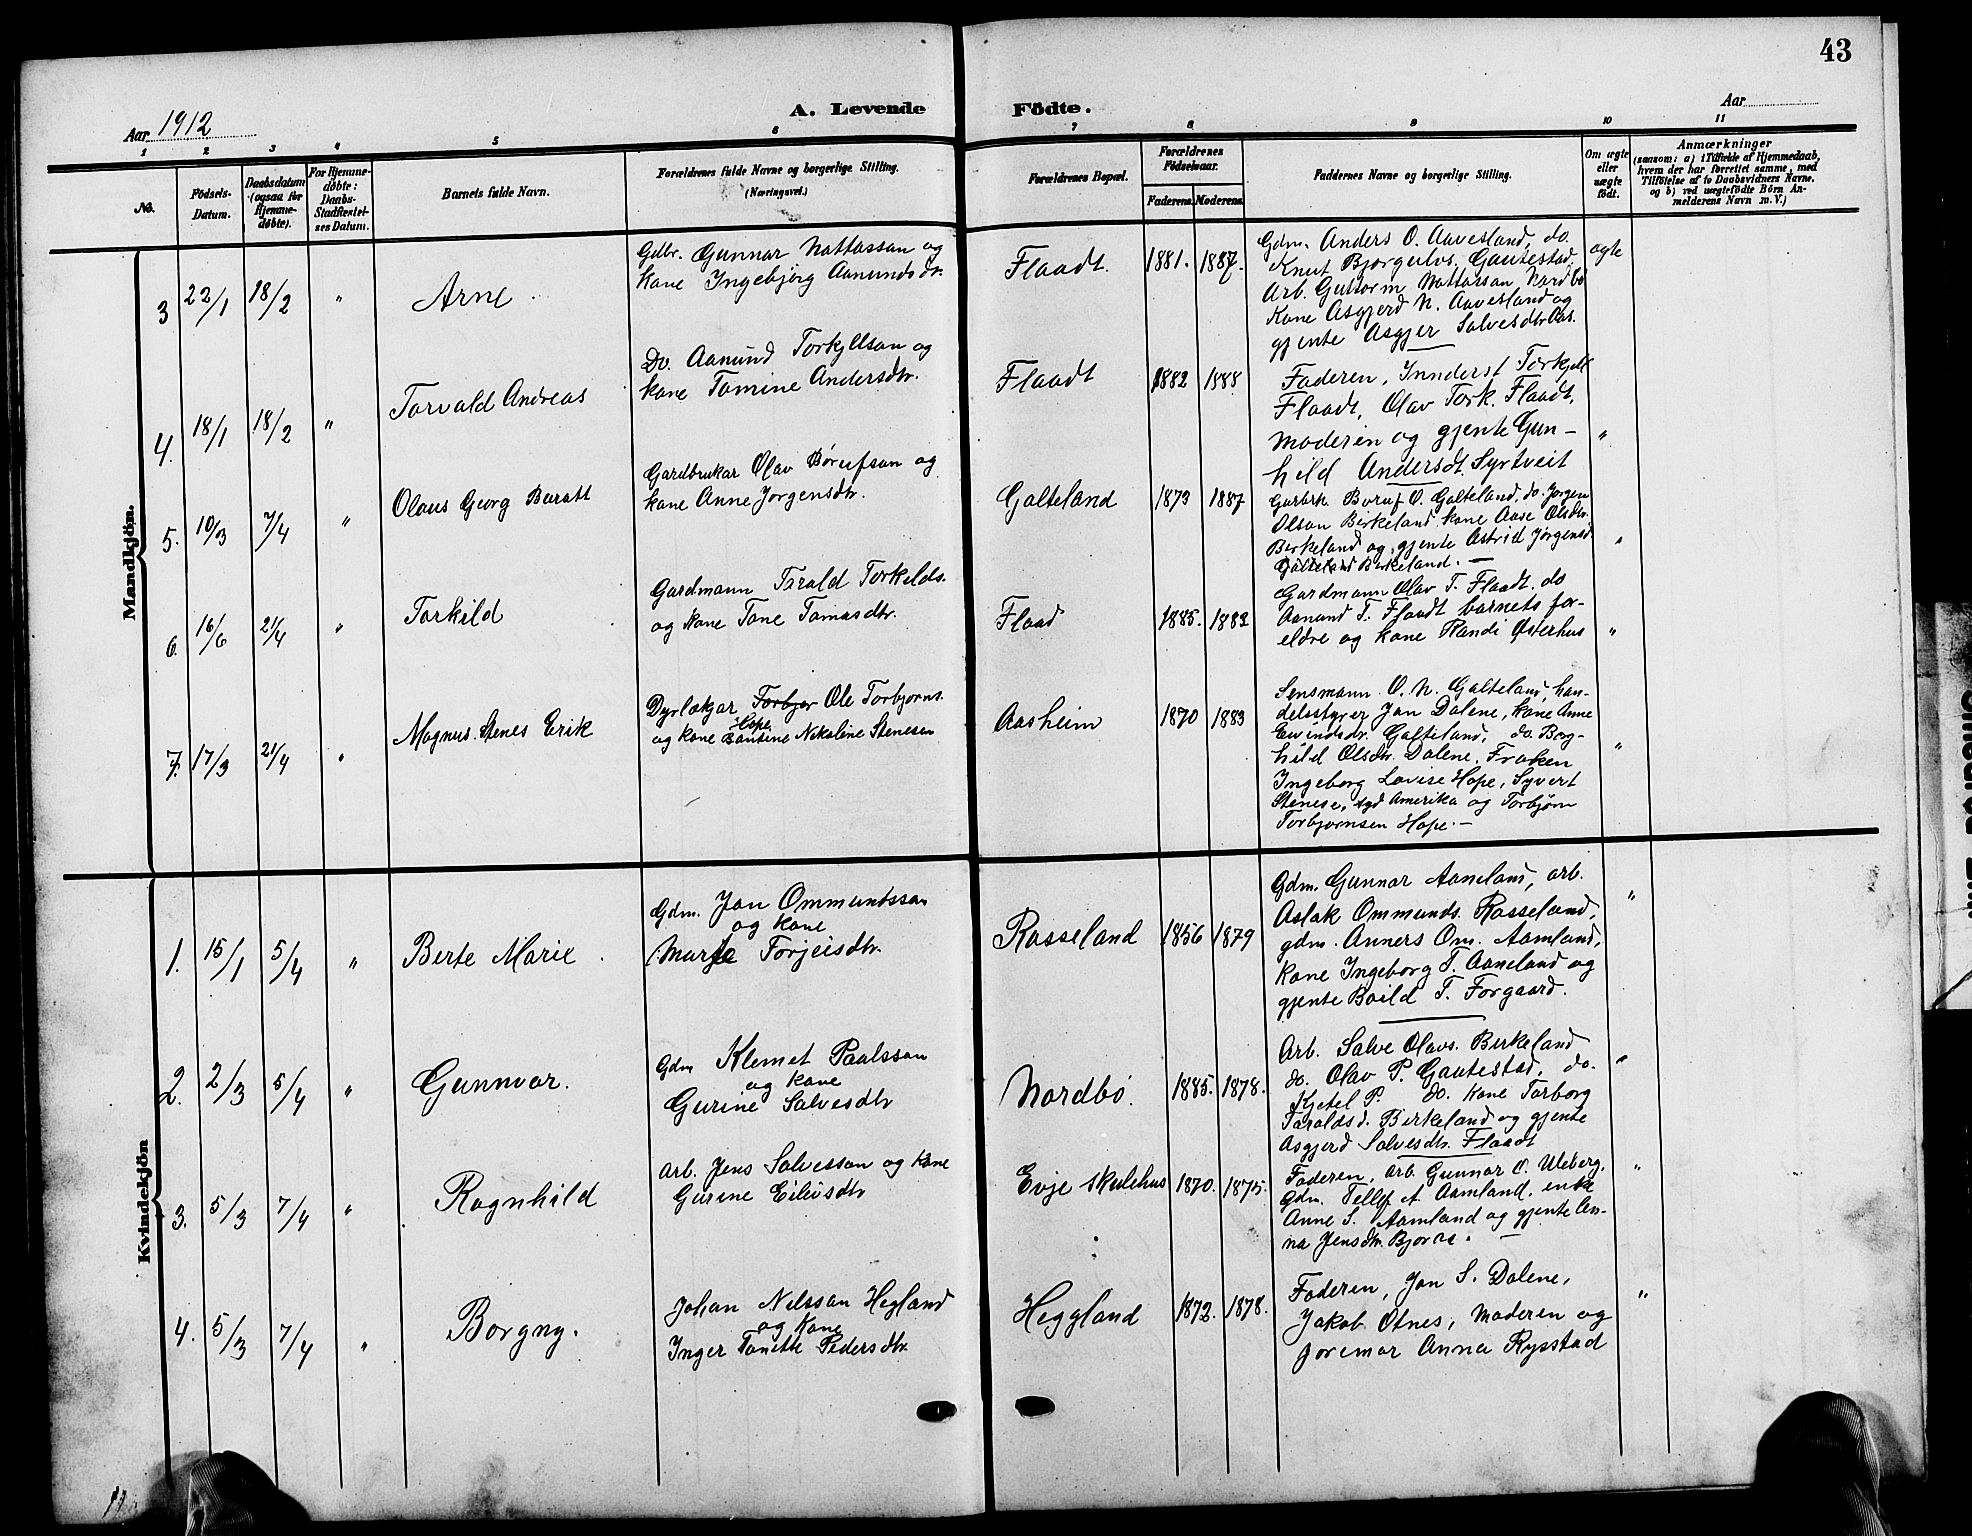 43
Aar 1912
A. Levende Födte.
Aar
1 2 3 4 5 6 7 8 9 10 11
No.
Födsels-Datum.
Daabsdatum (ogsaa for Hjemme-døbte).
For Hjemme-døbte: Daabs-Stadfæstel-ses Datum.
Barnets fulde Navn.
Forældrenes fulde Navne og borgerlige Stilling.
(Næringsvei.)
Forældrenes Bopæl.
Forældrenes Födselsaar.
Faderens. Moderens.
Faddernes Navne og borgerlige Stilling.
Om ægte eller uægte født.
Anmærkninger
(saasom: a) i Tilfælde af Hjemmedaab,
hvem der har forrettet samme, med
Tilföielse af to Daabsvidners Navne,
og b) ved uægtefödte Börn An-
melderens Navn m. V.)
Mandkjön.
3 22/1 18/2 " Arne
Gdbr. Gunnar Nattassan og
kane Ingebjørg Aanunds dr.
Flaadt. 1881. 1887.
Gdm. Anders O. Aavesland, do.
Knut Bjorgulvs. Gautestad,
Arb. Guttorm Nattassan Nordbö
Kone Asgjerd N. Aavesland og
gjente Asgjer Salvesdtr Aas.
ægte
4. 18/1 18/2 " Torvald Andreas
Do. Aanund Torkjellsan og
kane Tomine Andersdtr.
Flaadt 1882 1888
Faderen, Innderst Torkjell
Flaadt, Olav Tork. Flaadt,
moderen og gjente Gun-
hild Andersdt. Syrtveit
"
5. 10/3 7/4 " Olaus Georg Buratt
Gardbrukar Olav Børufsan og
kane Anne Jorgensdtr.
Galteland 1873 1887
Garbrk. Boruf O. Galteland, do. Jorgen
Olsan Birkeland kane Aase Olsdtr.
Birkeland og gjente Astrid Jørgensd
Galteland Birkeland. —
"
6. 16/6 21/4 " Torkild
Gardmann Tarald Torkelds.
og kone Tone Tomasdtr.
Flaad 1885. 1882
Gardmann Olav T. Flaadt. do
Aanund T. Flaadt barnets for-
eldre og kane Randi Østerhus
"
7. 17/3 21/4 " Magnus Stenes Erik
Dyrlækjar Torbjor Ole Torbjorns.
Hope
og kane Bantine Nikoline Stenesen
Aasheim 1870 1883
Lensmann O. N. Galteland, han-
delsstyrer Jon Dalene, kane Anne
Eivindsdr. Galteland, do. Borg-
hild Olsdtr. Dalene, Froken
Ingeborg Lovise Hope, Syvert
Stenese, syd Amerika og Torbjörn
Torbjornsen Hope. —
"
Kvindekjön
1. 15/1 5/4 " Berte Marie
Gdm. Jon Ommundssan
og kane
Marta Torjeisdtr.
Rosseland 1856 1879
Gdm. Gunnar Aaneland, arb.
Aslak Ommunds. Rosseland,
gdm. Anners Om. Aamland,
kane Ingeborg T. Aaneland og
gjente Boild T. Forgaard.
"
2. 2/3 5/4 " Gunnvor.
Gdm Klemet Paalssan
og kane
Gurine Salvesdtr
Nordbö. 1885. 1878.
Arb. Salve Olavs. Birkeland
do. Olav P. Gautestad, do.
Kjetel P. do. Kone Torborg
Taraldsd. Birkeland og gjente
Asgjerd Salvesdtr. Flaadt
"
3. 5/3 7/4 " Ragnhild
Arb. Jens Salvessan og kane
Gurine Eilivsdtr
Evje skulehus 1870. 1875.
Faderen, arb. Gunnar O. Uleberg,
Gdm. Tellef A Aamland, enke
Anne S. Aamland og gjente An-
na Jensdtr. Bjoraa. —
"
4. 5/3 7/4 " Borgny.
Johan Nilssan Hegland
og Kone
Inger Tonette Pedersdtr.
Heggland 1872. 1878.
Faderen, Jon S. Dalene,
Jakob Otnes, Moderen og
joremor Anna Rysstad
"